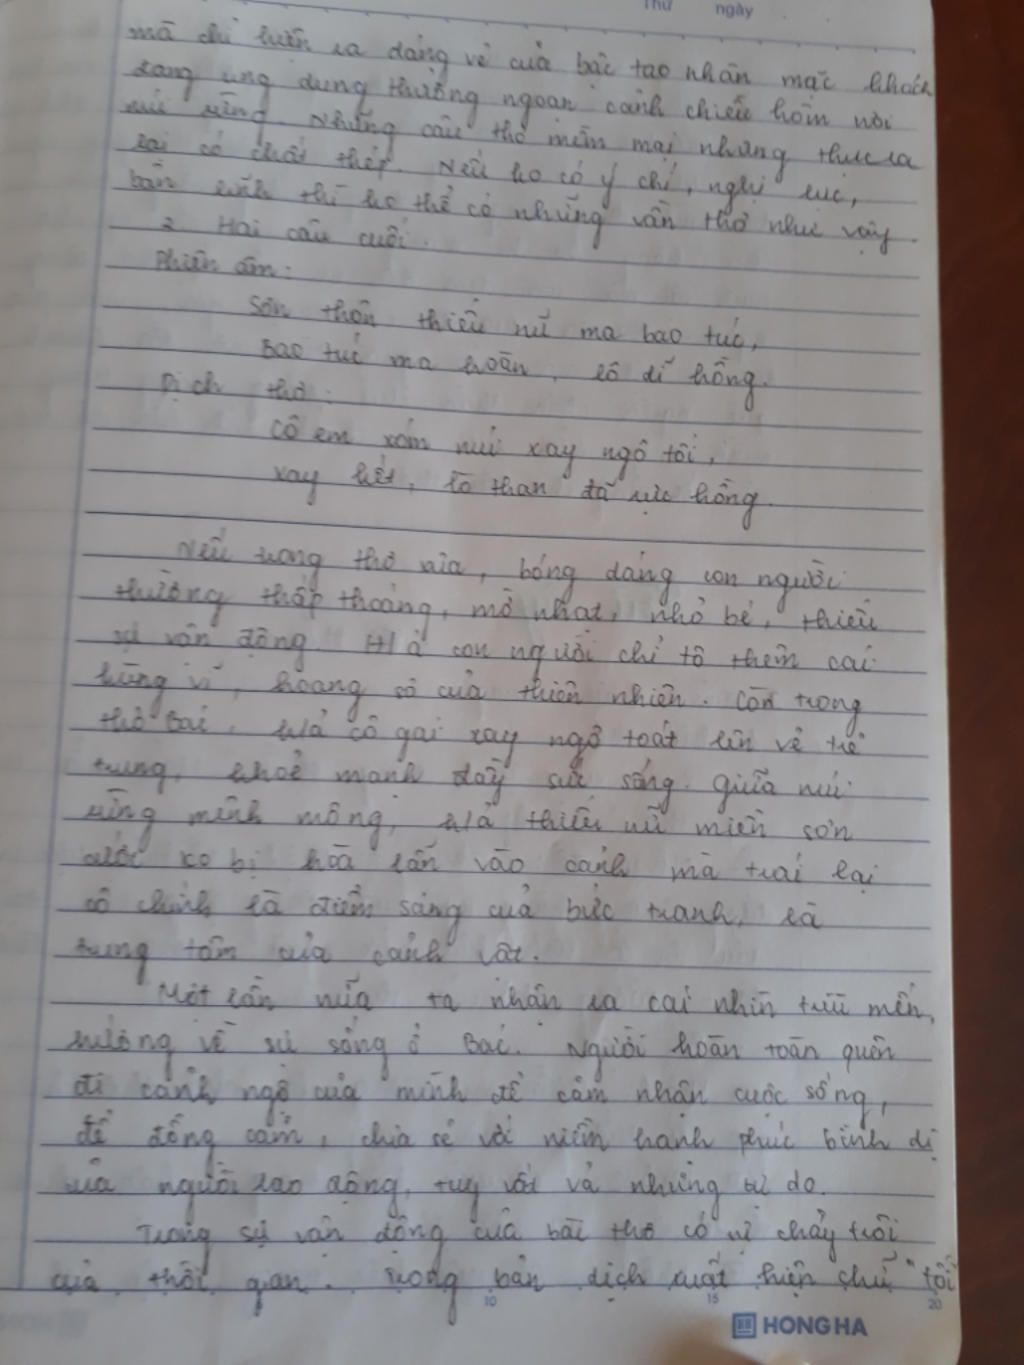 Thứ ngày
mà chỉ hiện ra dáng vẻ của bậc tao nhân mặc khách
đang ung dung thưởng ngoạn cảnh chiều hôm nơi
núi rừng. Những câu thơ mềm mại nhưng thực ra
lại có chất thép. Nếu ko có ý chí, nghị lực,
bản lĩnh thì ko thể có những vần thơ như vậy.
2. Hai câu cuối.
Phiên âm:
Sơn thôn thiếu nữ ma bao túc,
Bao túc ma hoàn, lô dĩ hồng.
Dịch thơ:
Cô em xóm núi xay ngô tối,
xay hết, lò than đã rực hồng.
Nếu trong thơ xưa, bóng dáng con người
thường thấp thoáng, mờ nhạt, nhỏ bé, thiếu
sự vận động. H/ả con người chỉ tô thêm cái
hùng vĩ, hoang sơ của thiên nhiên. Còn trong
thơ Bác, h/ả cô gái xay ngô toát lên vẻ trẻ
trung, khoẻ mạnh đầy sức sống. Giữa núi
rừng mênh mông, h/ả thiếu nữ miền sơn
cước ko bị hoà lẫn vào cảnh mà trái lại
cô chính là điểm sáng của bức tranh, là
trung tâm của cảnh vật.
Một lần nữa ta nhận ra cái nhìn trìu mến,
hướng về sự sống ở Bác. Người hoàn toàn quên
đi cảnh ngộ của mình để cảm nhận cuộc sống,
để đồng cảm, chia sẻ với niềm hạnh phúc bình dị
của người lao động, tuy vất vả nhưng tự do.
Trong sự vận động của bài thơ có sự chảy trôi
của thời gian. Trong bản dịch xuất hiện chữ "tối
10 15 20
HONG HA